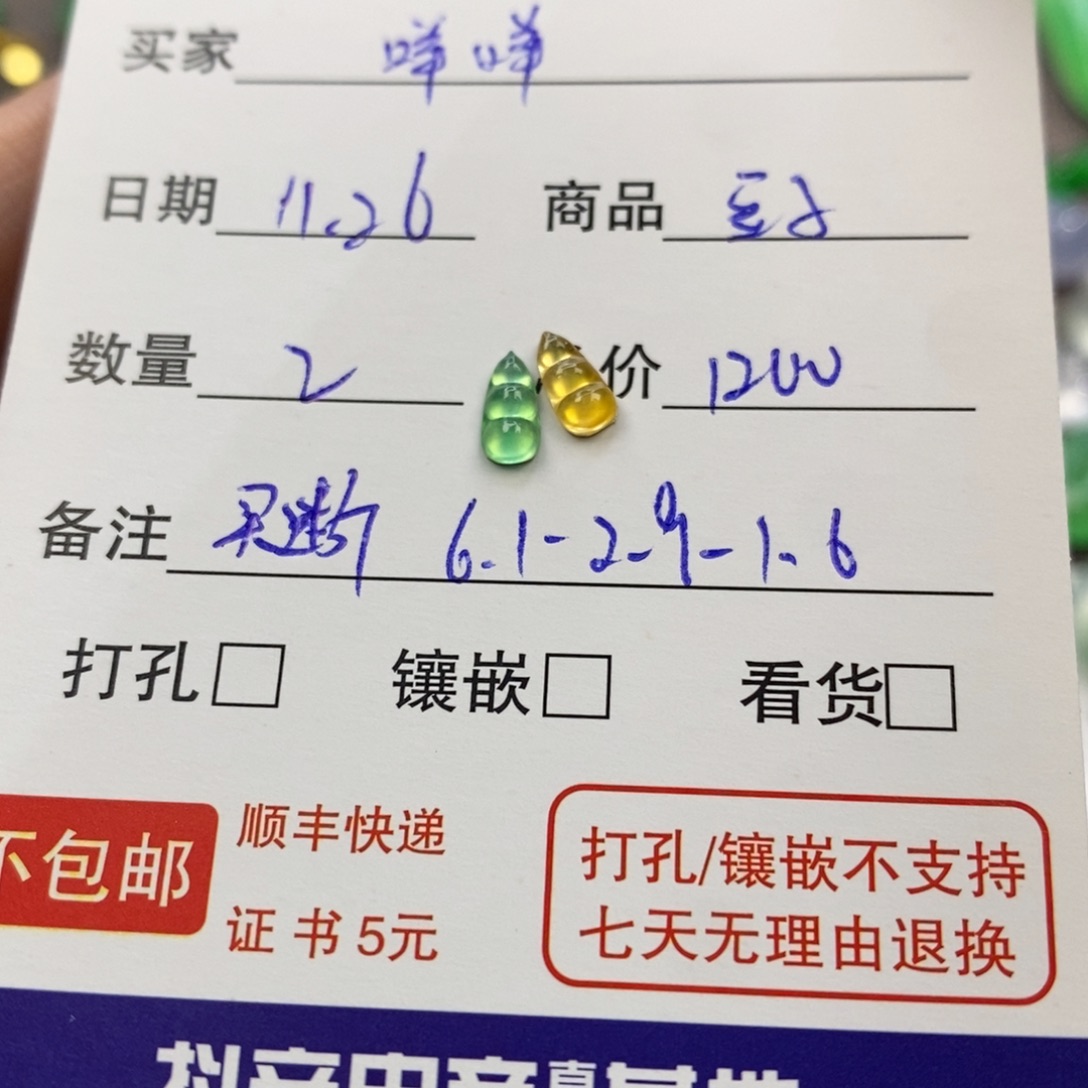 买家 咩咩
日期 11.26 商品 豆子
数量 2 价 1200
备注 6.1-2.9-1.6
打孔 镶嵌 看货
不包邮 顺丰快递 证书5元
打孔/镶嵌不支持
七天无理由退换
抖音电商直播基地